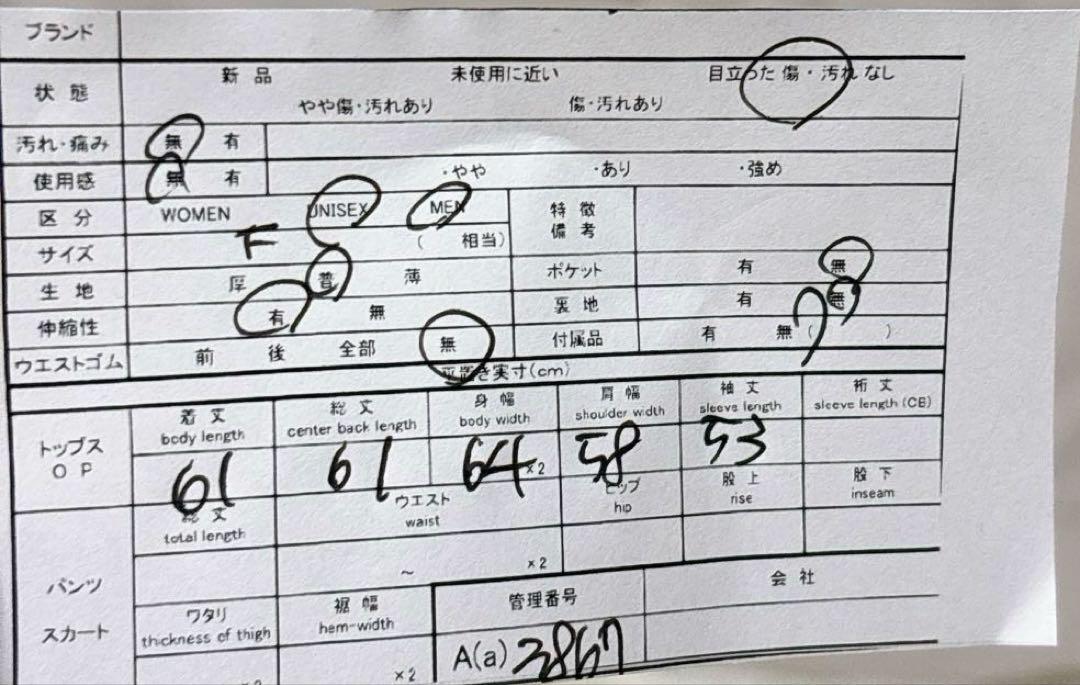 ブランド
状態 新品 未使用に近い 目立った傷・汚れなし
やや傷・汚れあり 傷・汚れあり
汚れ・痛み 無 有
使用感 無 有 ・やや ・あり ・強め
区分 WOMEN UNISEX MEN 特徴備考
サイズ F ( 相当)
生地 厚 普 薄 ポケット 有 無
伸縮性 有 無 裏地 有 無
ウエストゴム 前 後 全部 無 付属品 有 無 ( )
平置き実寸(cm)
トップス OP
着丈 総丈 身幅 肩幅 袖丈 裄丈
body length center back length body width shoulder width sleeve length sleeve length (CB)
61 61 64×2 58 53
総丈 ウエスト ヒップ 股上 股下
total length waist hip rise inseam
パンツ スカート
~ ×2
ワタリ 裾幅 管理番号 会社
thickness of thigh hem-width
×2 ×2 A(a) 3867